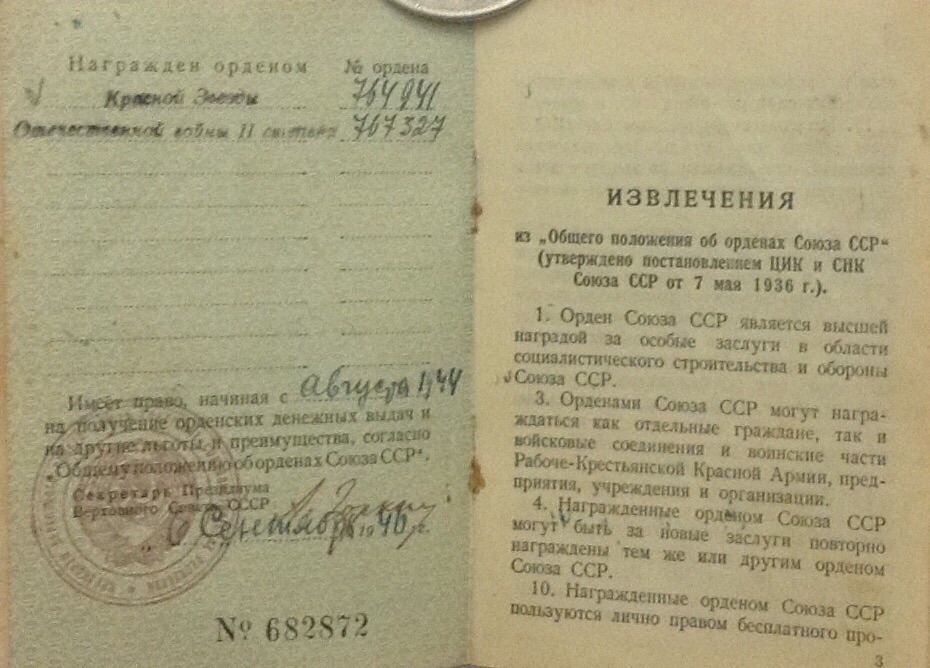 Награжден орденом № ордена
Красной Звезды 764941
Отечественной войны II степени 767327
Имеет право, начиная с августа 1944
на получение орденских денежных выдач и
на другие льготы и преимущества, согласно
„Общему положению об орденах Союза ССР“.
Секретарь Президиума
Верховного Совета СССР
6 Сентября 1946 г.
№ 682872
ИЗВЛЕЧЕНИЯ
из „Общего положения об орденах Союза ССР“
(утверждено постановлением ЦИК и СНК
Союза ССР от 7 мая 1936 г.).
1. Орден Союза ССР является высшей
наградой за особые заслуги в области
социалистического строительства и обороны
Союза ССР.
3. Орденами Союза ССР могут награ-
ждаться как отдельные граждане, так и
войсковые соединения и воинские части
Рабоче-Крестьянской Красной Армии, пред-
приятия, учреждения и организации.
4. Награжденные орденом Союза ССР
могут быть за новые заслуги повторно
награждены тем же или другим орденом
Союза ССР.
10. Награжденные орденом Союза ССР
пользуются лично правом бесплатного про-
3